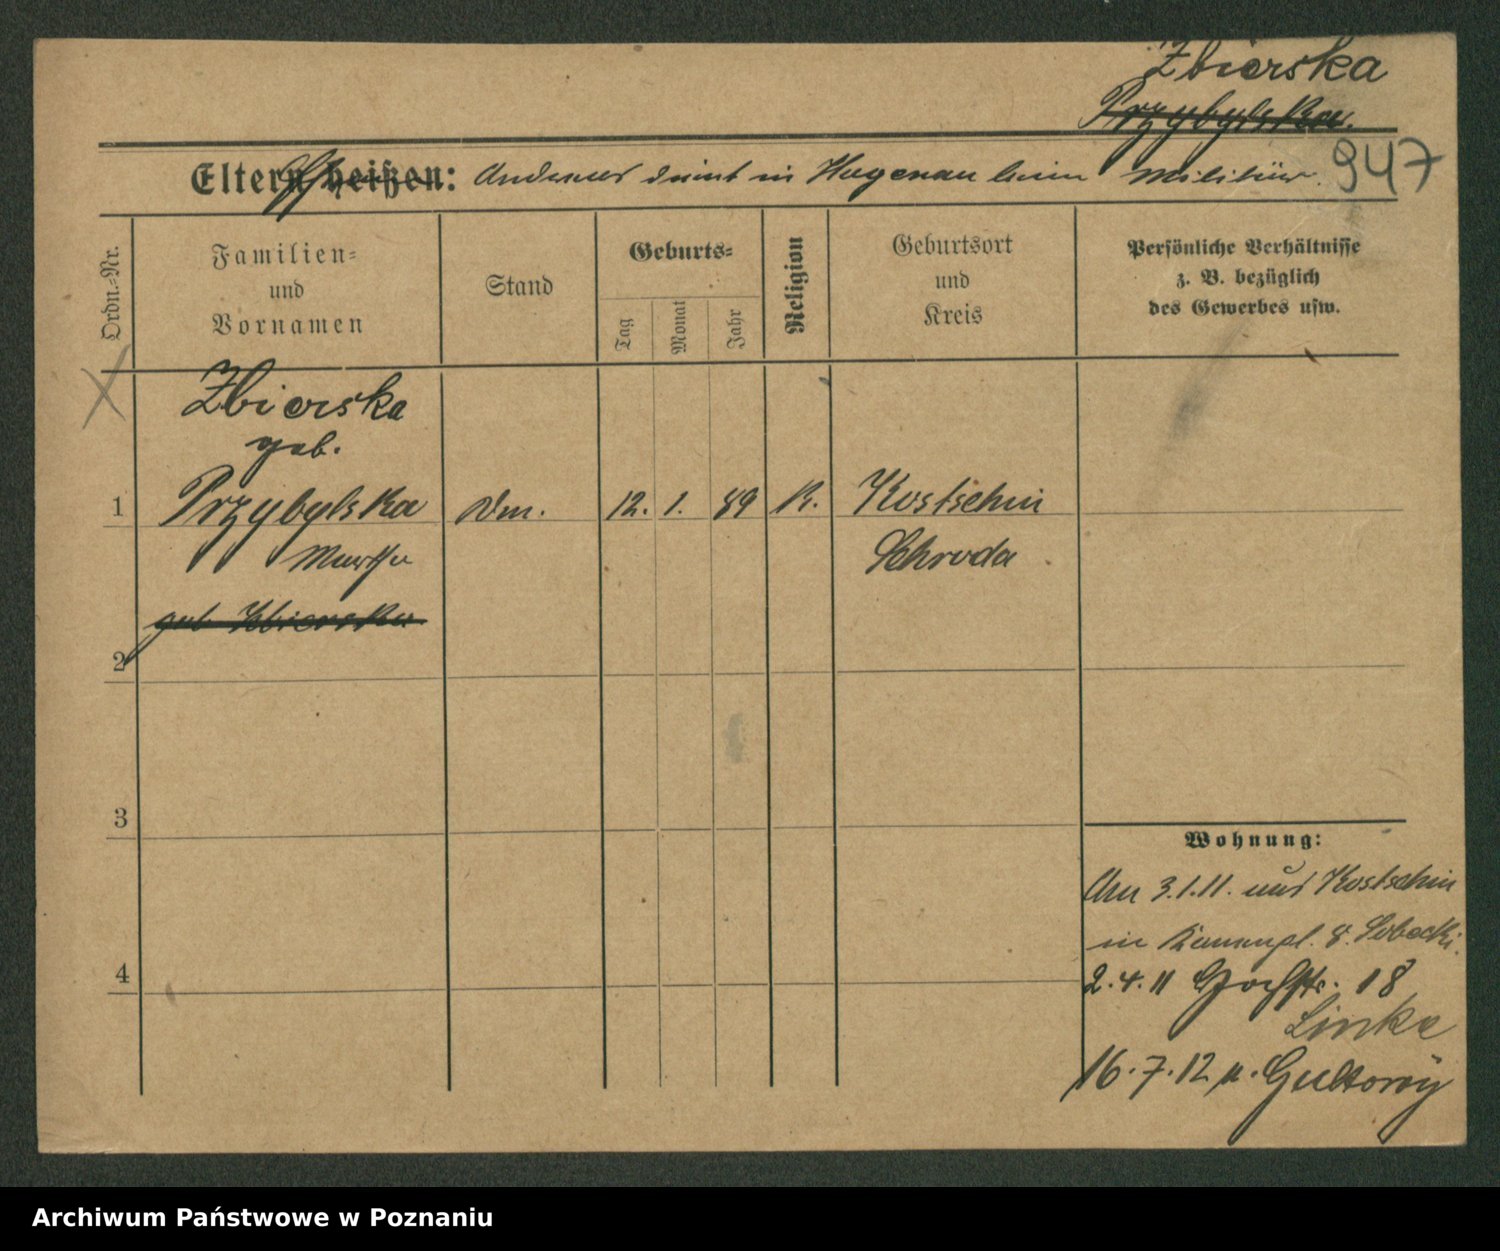 Zbierska
Przybylska.
947
Eltern heißen: dient in Hagenau beim Militär.
Ordn.-Nr.
Familien-
und
Vornamen
Stand
Geburts-
Tag
Monat
Jahr
Religion
Geburtsort
und
Kreis
Persönliche Verhältnisse
z. B. bezüglich
des Gewerbes usw.
Zbierska
geb.
1 Przybylska 12. 1. 89 K. Kostschin
Martha Schroda
geb Zbierska
2
3
Wohnung:
3.1.11. aus Kostschin
in 8. Sobecki.
4
2.4.11 18
Linke
16.7.12 n. Gultowy
Archiwum Państwowe w Poznaniu